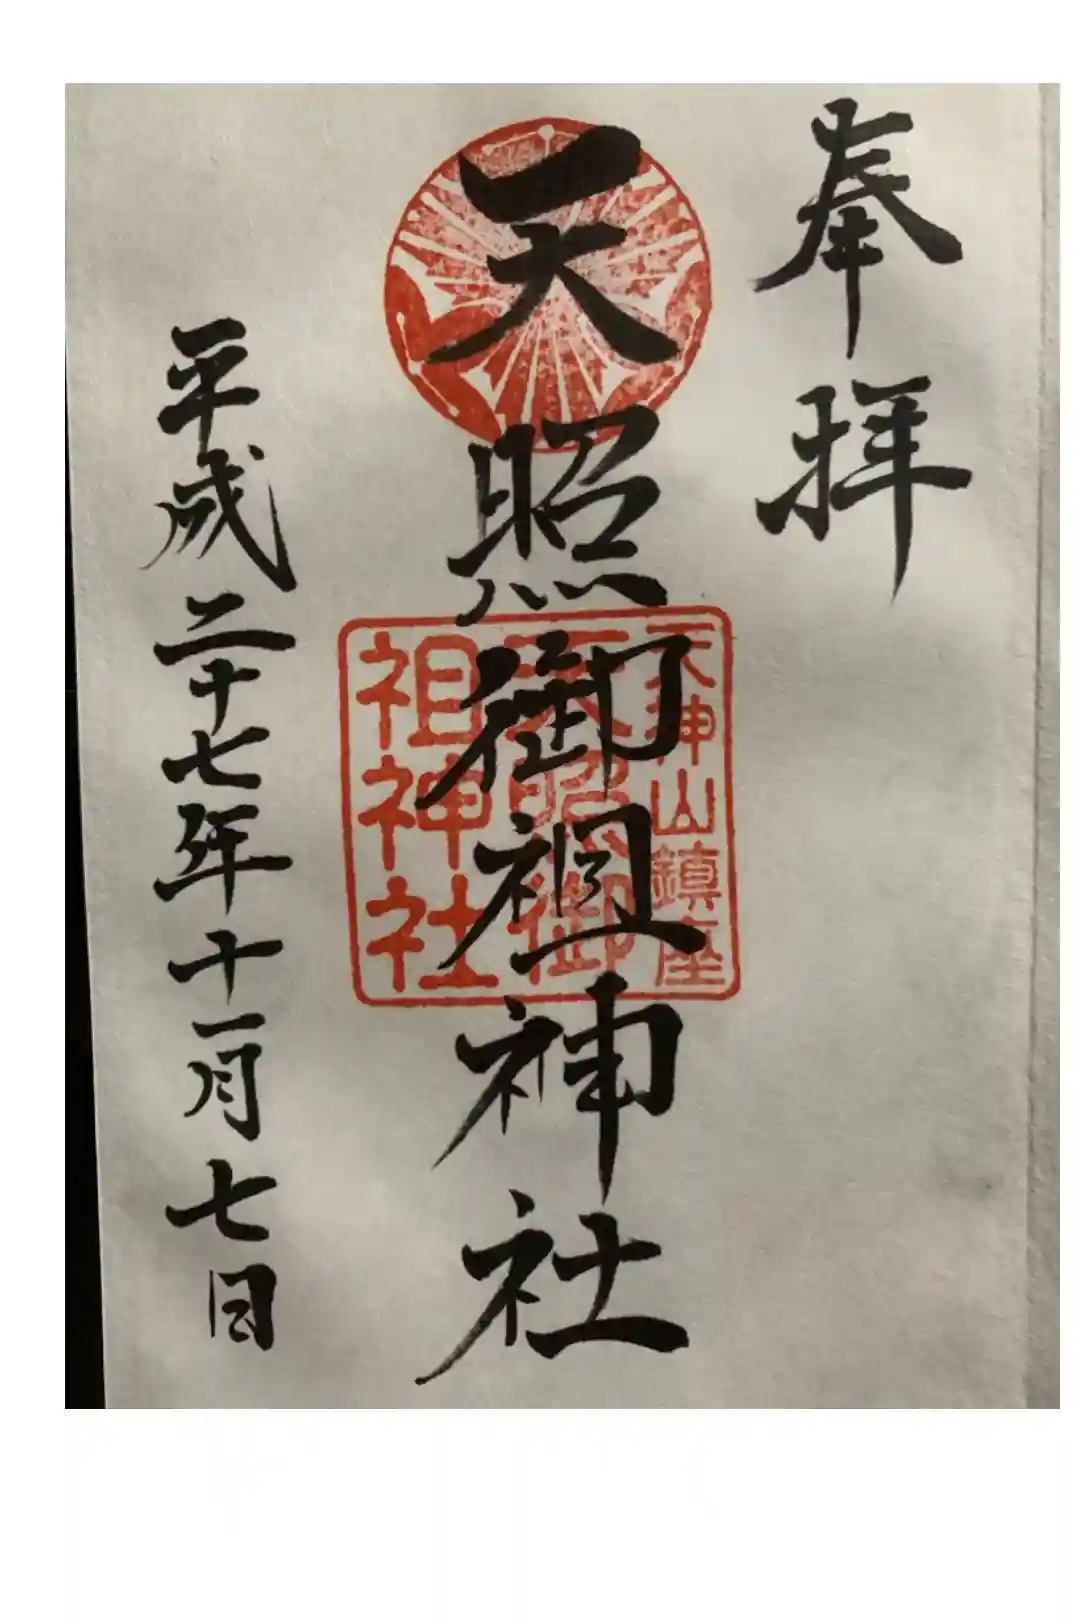 奉拝
天神山鎮座
天照御祖神社
天照御
祖神社
平成二十七年十一月七日